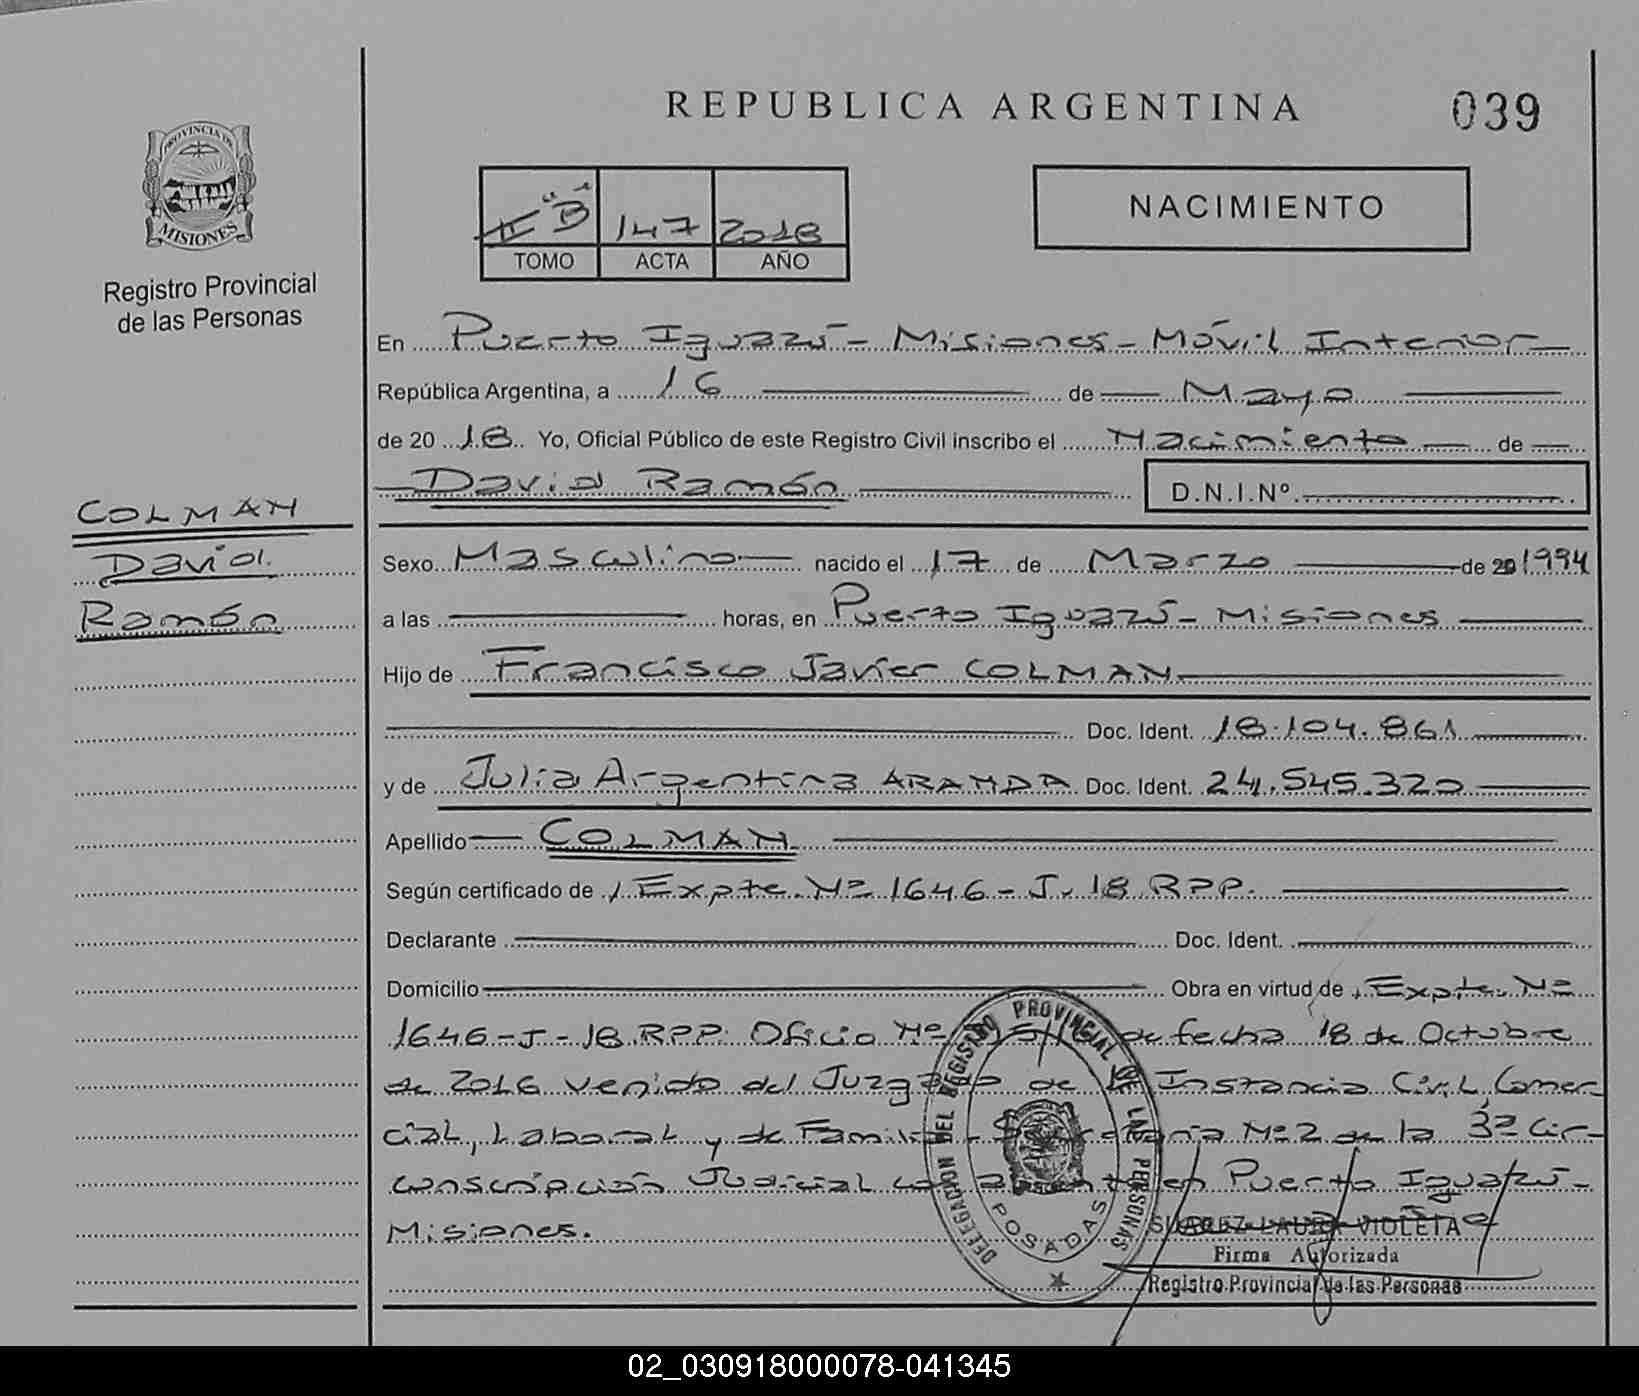 REPUBLICA ARGENTINA
039
PROVINCIA DE
MISIONES
Registro Provincial
de las Personas
II "B" 147 2018
TOMO ACTA AÑO
NACIMIENTO
En Puerto Iguazú - Misiones - Móvil Interior
República Argentina, a 16 de Mayo
de 20 18 Yo, Oficial Público de este Registro Civil inscribo el Nacimiento de
David Ramón D.N.I.Nº.
COLMAN
David
Ramón
Sexo Masculino nacido el 17 de Marzo de 1994
a las horas, en Puerto Iguazú - Misiones
Hijo de Francisco Javier COLMAN
Doc. Ident. 18.104.861
y de Julia Argentina ARANDA Doc. Ident. 24.545.320
Apellido COLMAN
Según certificado de Expte. Nº 1646 - J. 18 RPP.
Declarante Doc. Ident.
Domicilio Obra en virtud de Expte. Nº
1646 - J - 18 RPP. Oficio Nº de fecha 18 de Octubre
de 2016 venido del Juzgado de Instancia Civil, Comer-
cial, Laboral y de Familia - Secretaría Nº 2 de la 3ª Cir-
cunscripción Judicial con Asiento en Puerto Iguazú -
Misiones.
DELEGACION DEL REGISTRO PROVINCIAL DE LAS PERSONAS
POSADAS
SUAREZ LAURA VIOLETA
Firma Autorizada
Registro Provincial de las Personas
02_030918000078-041345